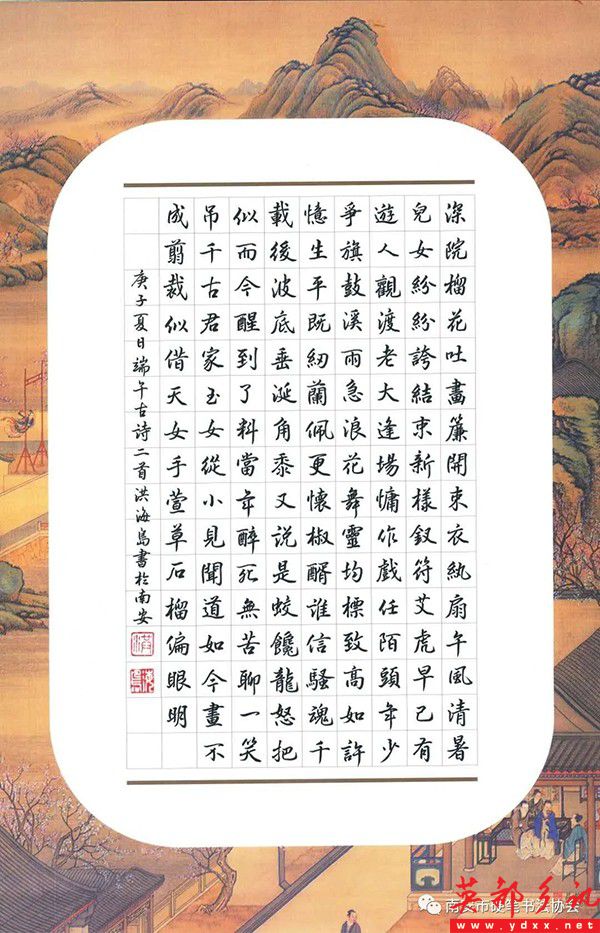 深院榴花吐畫簾開束衣紈扇午風清暑
兒女紛紛誇結束新樣釵符艾虎早已有
遊人觀渡老大逢場慵作戲任陌頭年少
爭旗鼓溪雨急浪花舞靈均標致高如許
憶生平既紉蘭佩更懷椒醑誰信騷魂千
載後波底垂涎角黍又說是蛟饞龍怒把
似而今醒到了料當年醉死無苦聊一笑
吊千古君家玉女從小見聞道如今畫不
成剪裁似借天女手萱草石榴偏眼明
庚子夏日端午古詩二首洪海島書於南安
南安市硬笔书法协会
英都乡讯
www.ydxx.net